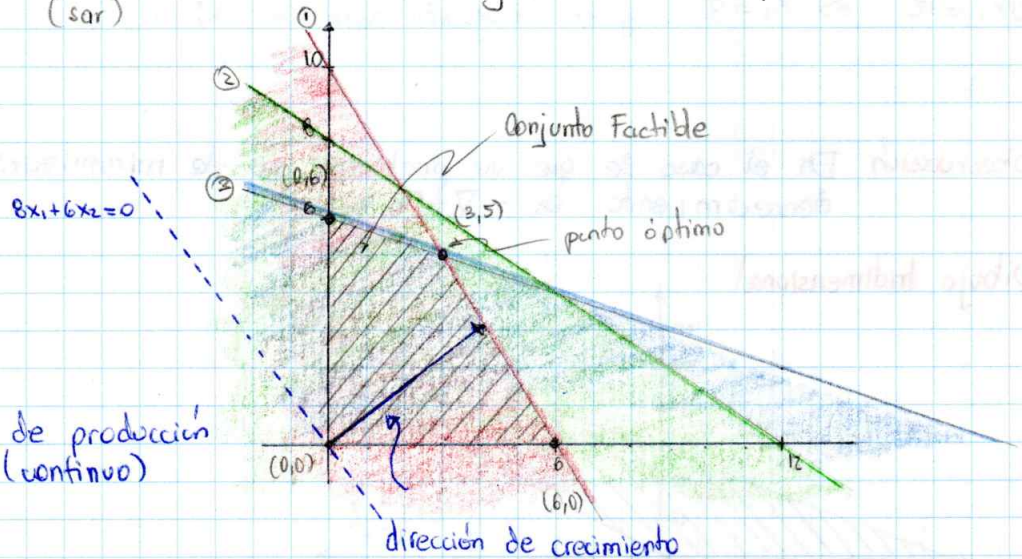 (sar)
①
10
②
8
Conjunto Factible
(0,6)
③
6
8x₁+6x₂=0
(3,5)
punto óptimo
de producción
(continuo)
(0,0)
6
12
(6,0)
dirección de crecimiento